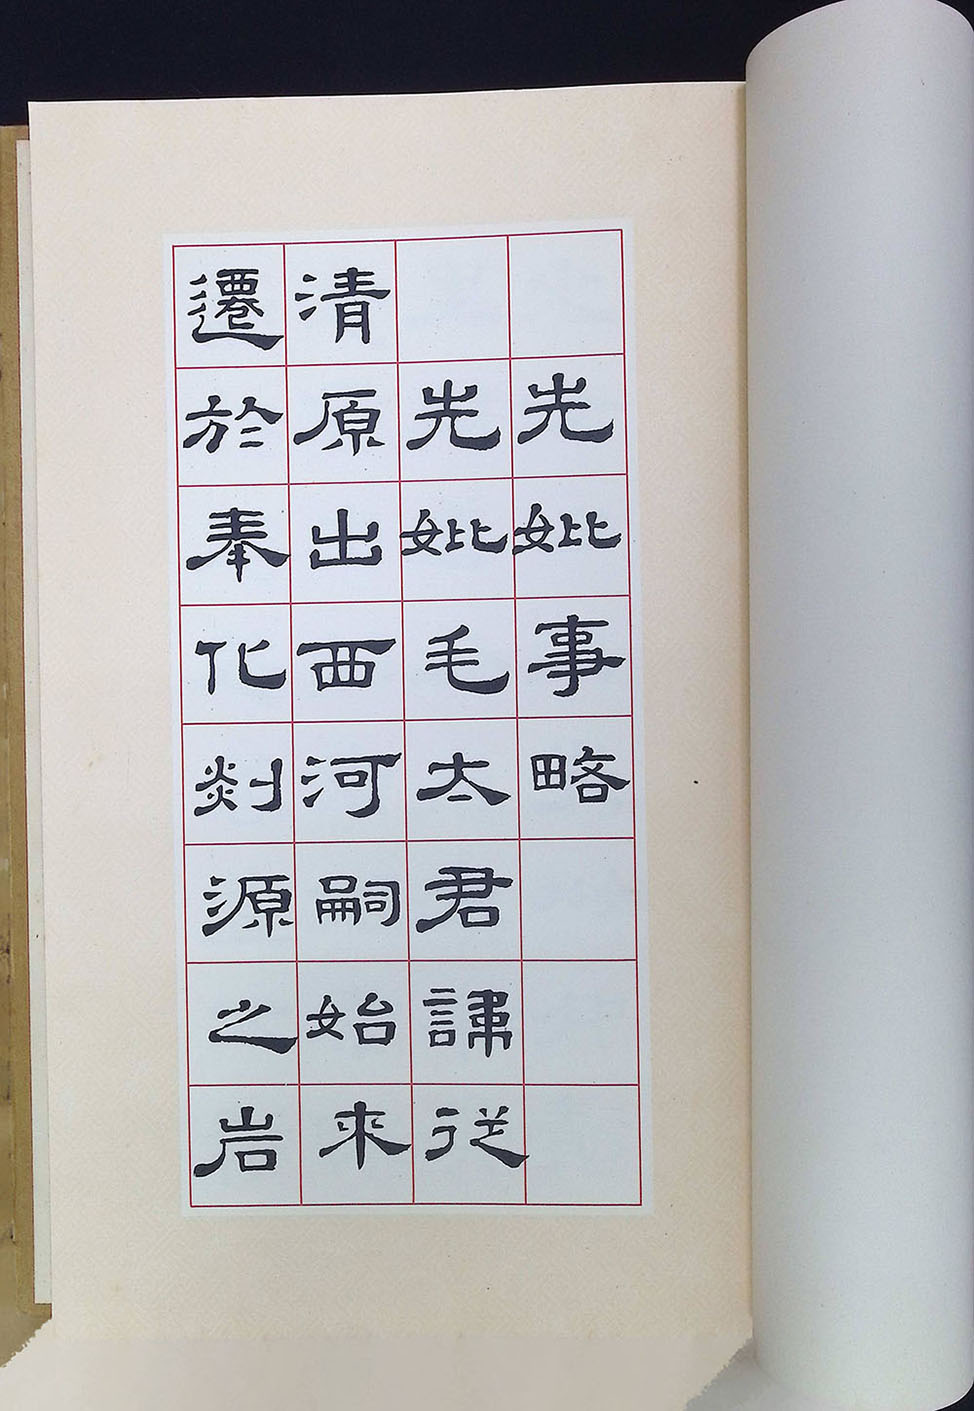 先妣事略
先妣毛太君諱從
清原出西河嗣始來
遷於奉化剡源之岩